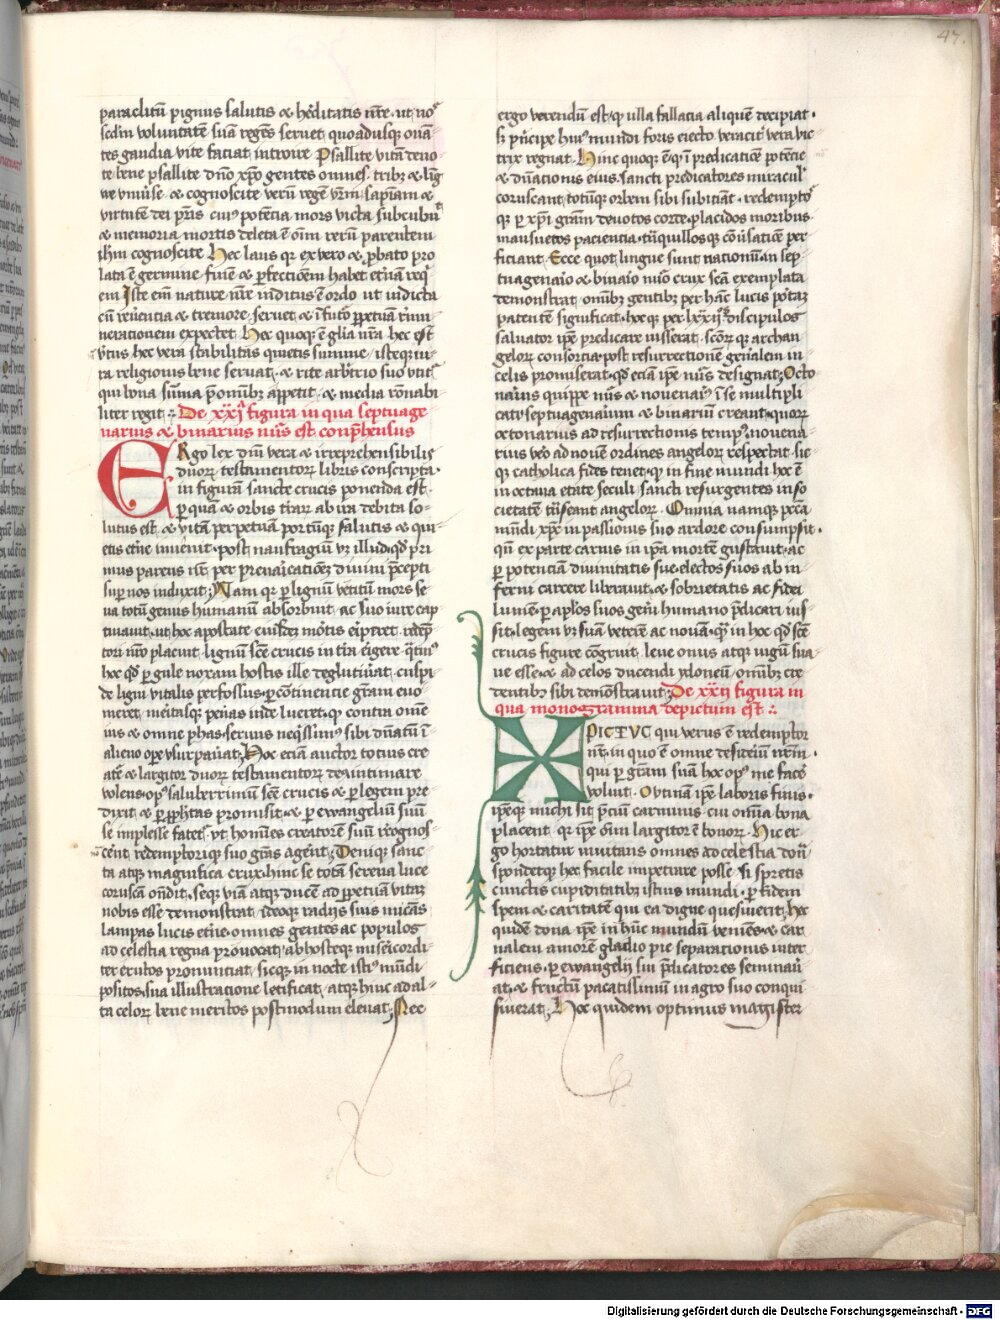 47.
paraclitū pignus salutis ⁊ hēditatis nrē · ut nō
sedm voluntatē suā regēs servet quoadusq; ovā
tes gaudia vite faciat introire Psallite vitā devo
te bene psallite dnō xpō gentes omnes tribꝫ ⁊ lig
we ⁊ cognoscite verū regē vrm sapiam ⁊
virtutē dei pris cuiꝰ potētia mors victa subcubuit
⁊ memoria mortis deleta ē oim rerū parentem
ihm cognoscite Hec laus qr ex vero ⁊ pbato pro
lata ē germine finē ⁊ pfectionem habet
em Iste em nature nre inditus ē ordo ut indicta
cū reverentia ⁊ tremore servet ⁊ ī futo ppetuā
nerationem expectet Hec quoq; ē glia nra hec est
vtus hec vera stabilitas quietis summe isteq; iu
ra religionis bene servat ⁊ rite arbitrio suo utit
qui bona sūma p omnibꝫ appetit ⁊ media rōnabi
liter regit De xxi figura in qua septuage
narius ⁊ binarius nūs est conphensus
ERgo lex dim vera ⁊ irreprehensibilis
duorꝫ testamentorꝫ libris conscripta
in figurā sancte crucis ponenda est ·
p quā ⁊ orbis ab ira debita so
lutus est ⁊ vitā perpetuā portūq; salutis ⁊ qui
etis etne invenit post naufragiū illud qd pri
mus parens nr per prevaricationē divini pcepti
sup nos induxit Nam qr p lignū vetitū mors se
va totū genus humanū absorbuit ac suo iure cap
tivavit ut hec apostate mōtis eriperet redēp
tori nro placuit lignū scē crucis in tra erigere
hec qd p gule noxam hostis ille deglutiuat cuspi
de ligni vitalis perfossus p continentie grām evo
meret meritasq; penas inde lueret q contra
ius ⁊ omne phas servus neqssimꝰ sibi dnatū ī
alieno ope usurpauat Hoc etiā auctor totius cre
ate ⁊ largitor duorꝫ testamentorꝫ
volens opꝰ saluberrimū scē crucis ⁊ p legem pre
dixit ⁊ p pphetas promisit ⁊ p ewangeliū suū
se implesse fatet ut homīes creatorē suū recognos
cent redemptoriq; suo grās agent Deniq; sanc
ta atq; magnifica crux huic se totā serena luce
coruscā ondit seq; viā atq; ducē ad ppetuā vitā
nobis esse demonstrat ideoq; radijs suis micās
lampas lucis etne omnes gentes ac populos
ad celestia regna provocat ab hosteq; misericordi
ter erutos pronuntiat sicq; in nocte istiꝰ mūdi
positos sua illustratione letificat atq; hinc ad al
ta celorꝫ bene meritos postmodum elevat Nec
ergo verendū est q illa fallatia aliquē decipiat ·
sꝫ pncipe huiꝰ mundi foris eiecto veracit vera vic
trix regnat Hinc quoq; ī predicatiōe potētie
⁊ dnationis eius sancti predicatores miracul
coruscant totūq; orbem sibi subiciāt redempto
q; p xpi grām devotos corde placidos moribus
mansuetos pacientia trāquillosq; cōvsatiōe per
ficiant Ecce quot lingue sunt nationū in sep
tuagenario ⁊ binario nūo crux scā exemplata
demonstrat omībꝫ gentibꝫ per hāc lucis portā
patentē significat hecq; per lxxij discipulos
salvator ipe predicare iusserat scōrꝫ q archan
gelorꝫ consortia post resurrectionē genalem in
celis promiserat qd etiā ipe nūs designat Octo
narius quippe nūs ⁊ novenariꝰ ī se multipli
catꝰ septuagenariū ⁊ binariū creant quorꝫ
octonarius ad resurrectionis tempꝰ novena
rius vero ad novē ordines angelorꝫ respectat sic
q catholica fides tenet q in fine mundi hec ē
in octava etate seculi sancti resurgentes in so
cietatē tūseant angelorꝫ Omnia namq; pccā
mūdi xpc in passionis suo ardore consumpsit ·
qn ex parte carnis in ipa mortē gustavit ac
p potenciā divinitatis sue electos suos ab in
ferni carcere liberavit ⁊ sobrietatis ac fidei
lumē p aplos suos genti humano pdicari ius
sit legem vr suā veterē ac novā q in hoc qd scē
crucis figure cōgruit leve onus atq; iugū sua
ve esse ⁊ ad celos ducendi ydoneū omībꝫ cre
dentibꝫ sibi demōstravit De xxij figura in
qua monogramma depictum est
XPICTVC qui verus ē redemptor
nr in quo ē omne desideriū nrm ·
qui p grām suā hoc opꝰ me facē
voluit · Optinā ipe laboris finis ·
ipeq; michi sit pciū carminis cui omīa bona
placent qr ipe oim largitor ē bonorꝫ Hic er
go hortatur invitans omnes ad celestia
spondetq; hec facile impetrare posse si spretis
cunctis cupiditatibꝫ istius mundi p fidem
spem ⁊ caritatē qui ea digne quesiverit Hec
quidē dona ipe in hūc mundū veniēs ⁊ car
nalem amorē gladio pie separationis inter
ficiens p ewangelij sui pdicatores seminau
at ⁊ fructū pacatissimū in agro suo conqui
siverat Hoc quidem optimus magister
Digitalisierung gefördert durch die Deutsche Forschungsgemeinschaft - DFG